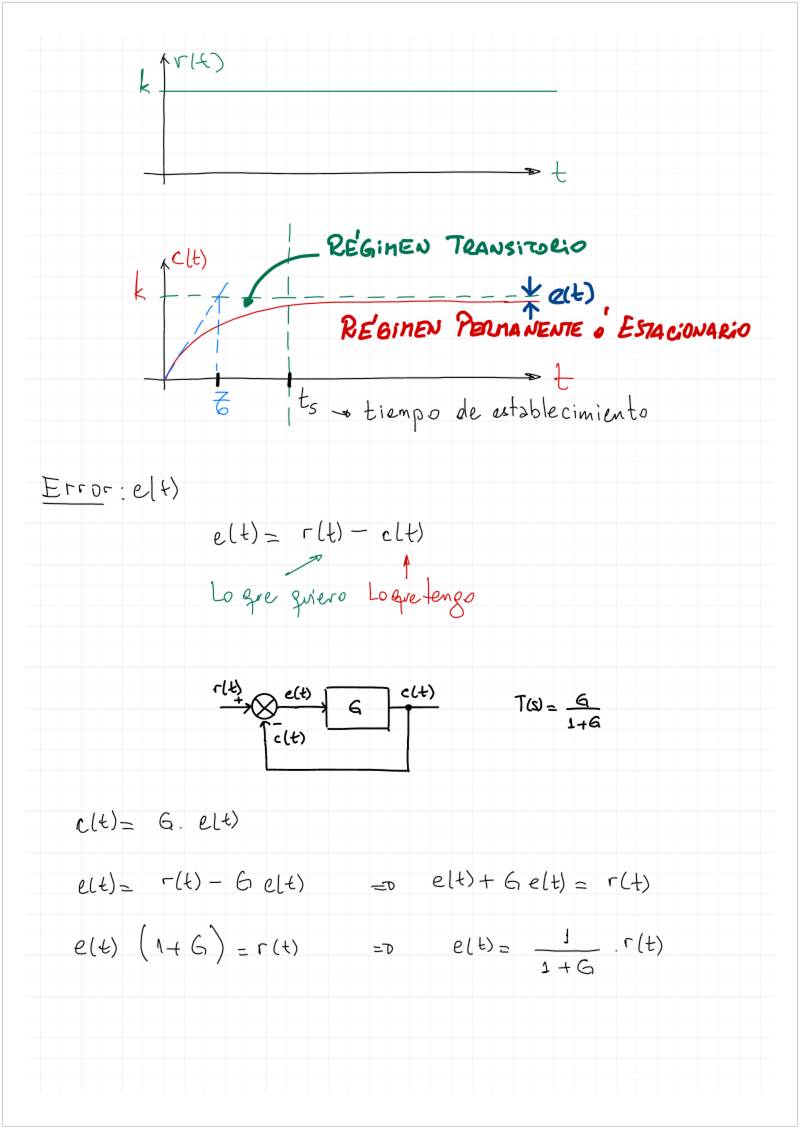 r(t)
k
t
c(t)
RÉGIMEN TRANSITORIO
k
e(t)
RÉGIMEN PERMANENTE ó ESTACIONARIO
t
ts → tiempo de establecimiento
Error: e(t)
e(t) = r(t) - c(t)
Lo que quiero Lo que tengo
r(t) + e(t) G c(t)
- c(t)
T(s) = G / 1+G
c(t) = G. e(t)
e(t) = r(t) - G e(t) => e(t) + G e(t) = r(t)
e(t) (1+G) = r(t) => e(t) = 1 / 1+G . r(t)